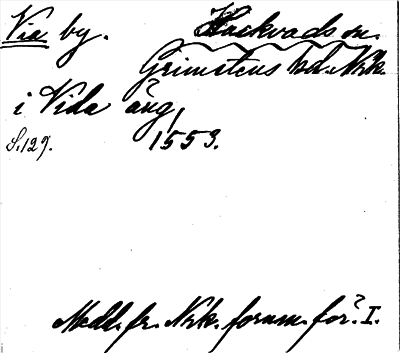 Via by. Hackvads sn.
Grimstens hd. Nrk.
i Vida äng,
S. 129. 1553.
Medd. fr. Nrk. fornm. för. I.